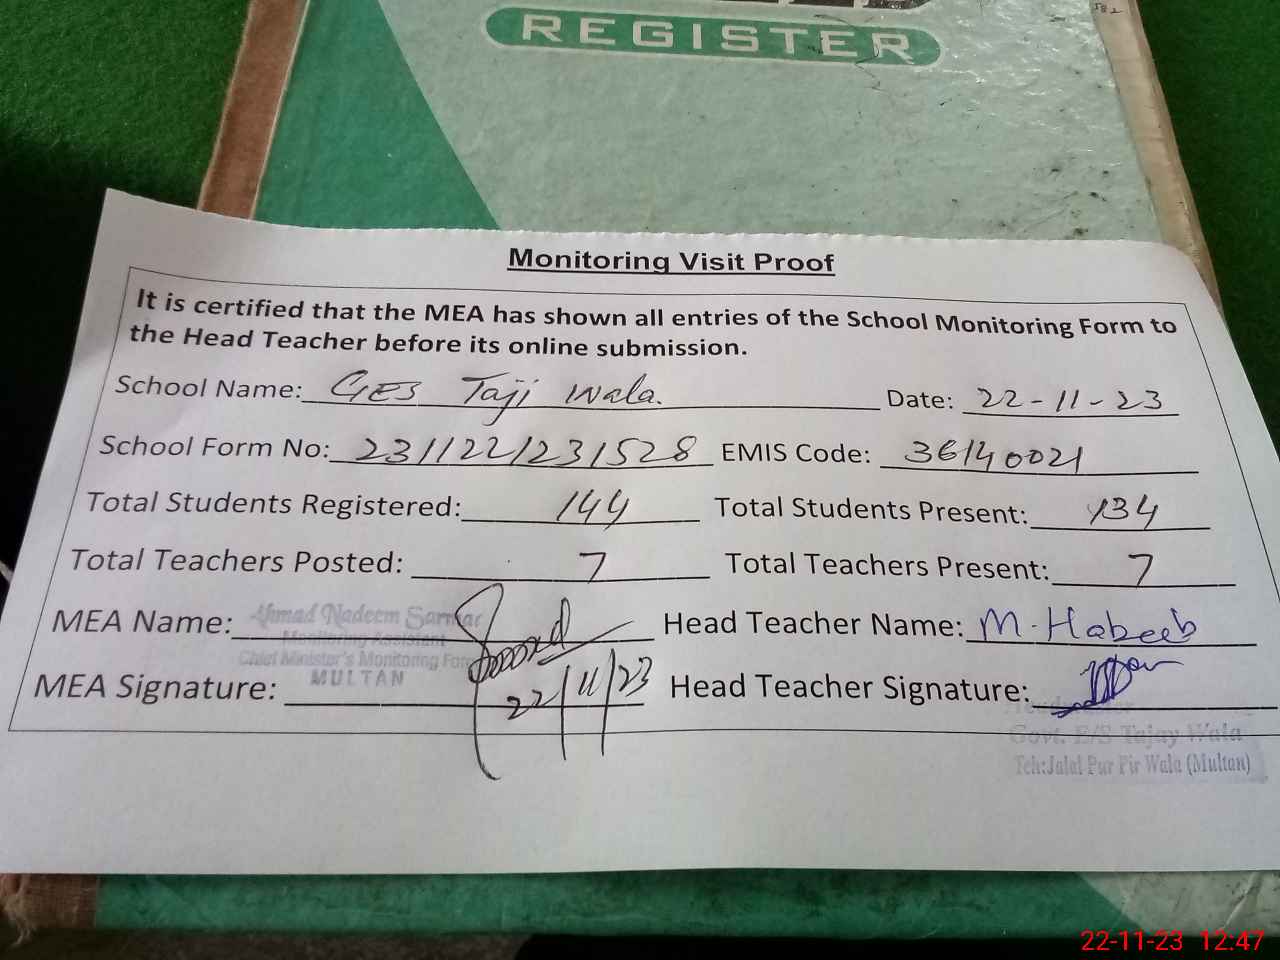 REGISTER
Monitoring Visit Proof
It is certified that the MEA has shown all entries of the School Monitoring Form to
the Head Teacher before its online submission.
School Name: GES Taji Wala. Date: 22-11-23
School Form No: 231122/231528 EMIS Code: 36140021
Total Students Registered: 144 Total Students Present: 134
Total Teachers Posted: 7 Total Teachers Present: 7
MEA Name: Ahmad Nadeem Sarwar Head Teacher Name: M. Habeeb
Monitoring Assistant
Chief Minister's Monitoring Force
MULTAN
MEA Signature: 22/11/23 Head Teacher Signature:
Govt. E/S Tajay Wala
Teh: Jalal Pur Pir Wala (Multan)
22-11-23 12:47